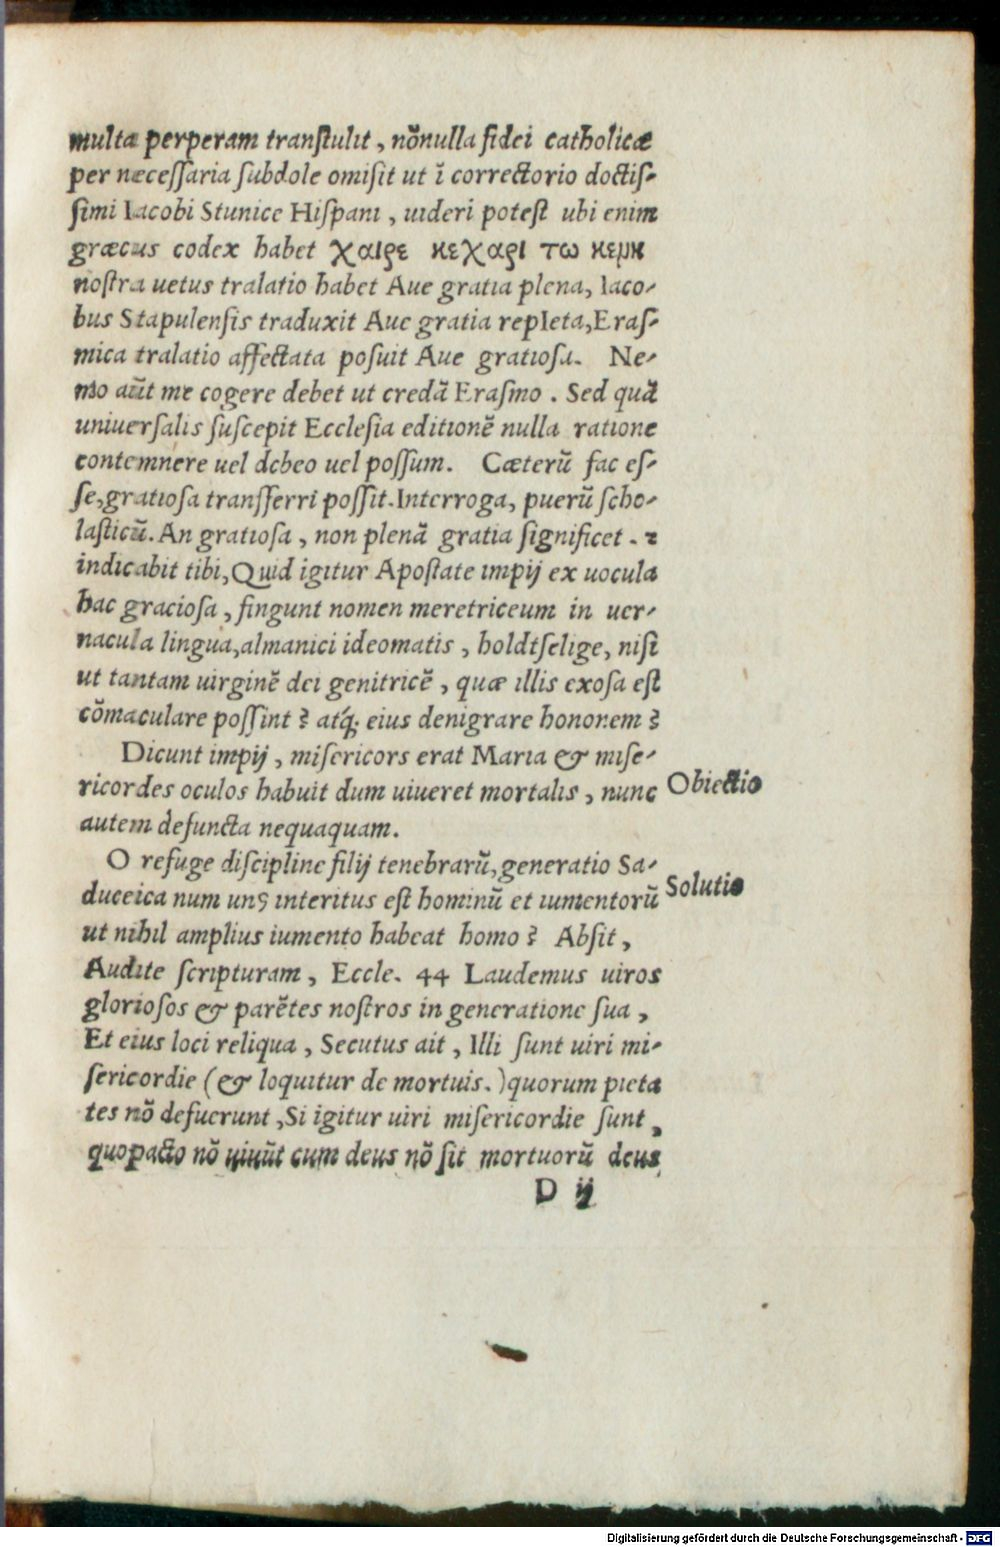 multa perperam tranſtulit, nõnulla fidei catholicæ
per næceſſaria ſubdole omiſit ut ĩ correctorio doctiſ-
ſimi Iacobi Stunice Hiſpani, uideri poteſt ubi enim
græcus codex habet χαιρε κεχαρι τω κεμκ
noſtra uetus tralatio habet Aue gratia plena, Iaco-
bus Stapulenſis traduxit Aue gratia repleta, Eraſ-
mica tralatio affectata poſuit Aue gratioſa. Ne-
mo aũt me cogere debet ut credã Eraſmo. Sed quã
uniuerſalis ſuſcepit Eccleſia editionẽ nulla ratione
contemnere uel debeo uel poſſum. Cæterũ fac eſ-
ſe, gratioſa tranſferri poſſit. Interroga, puerũ ſcho-
laſticũ. An gratioſa, non plenã gratia ſignificet. ⁊
indicabit tibi, Quid igitur Apoſtate impij ex uocula
hac gracioſa, fingunt nomen meretriceum in uer-
nacula lingua, almanici ideomatis, holdtſelige, niſi
ut tantam uirginẽ dei genitricẽ, quæ illis exoſa eſt
cõmaculare poſſint? atq́; eius denigrare honorem?
Dicunt impij, miſericors erat Maria & miſe-
ricordes oculos habuit dum uiueret mortalis, nunc
Obiectio
autem defuncta nequaquam.
O refuge diſcipline filij tenebrarũ, generatio Sa-
duceica num unꝰ interitus eſt hominũ et iumentorũ
Solutio
ut nihil amplius iumento habeat homo? Abſit,
Audite ſcripturam, Eccle. 44 Laudemus uiros
glorioſos & parẽtes noſtros in generatione ſua,
Et eius loci reliqua, Secutus ait, Illi ſunt uiri mi-
ſericordie (& loquitur de mortuis.) quorum pieta
tes nõ defuerunt, Si igitur uiri miſericordie ſunt,
quopacto nõ uiuũt cum deus nõ ſit mortuorũ deus
D ij
Digitalisierung gefördert durch die Deutsche Forschungsgemeinschaft - DFG